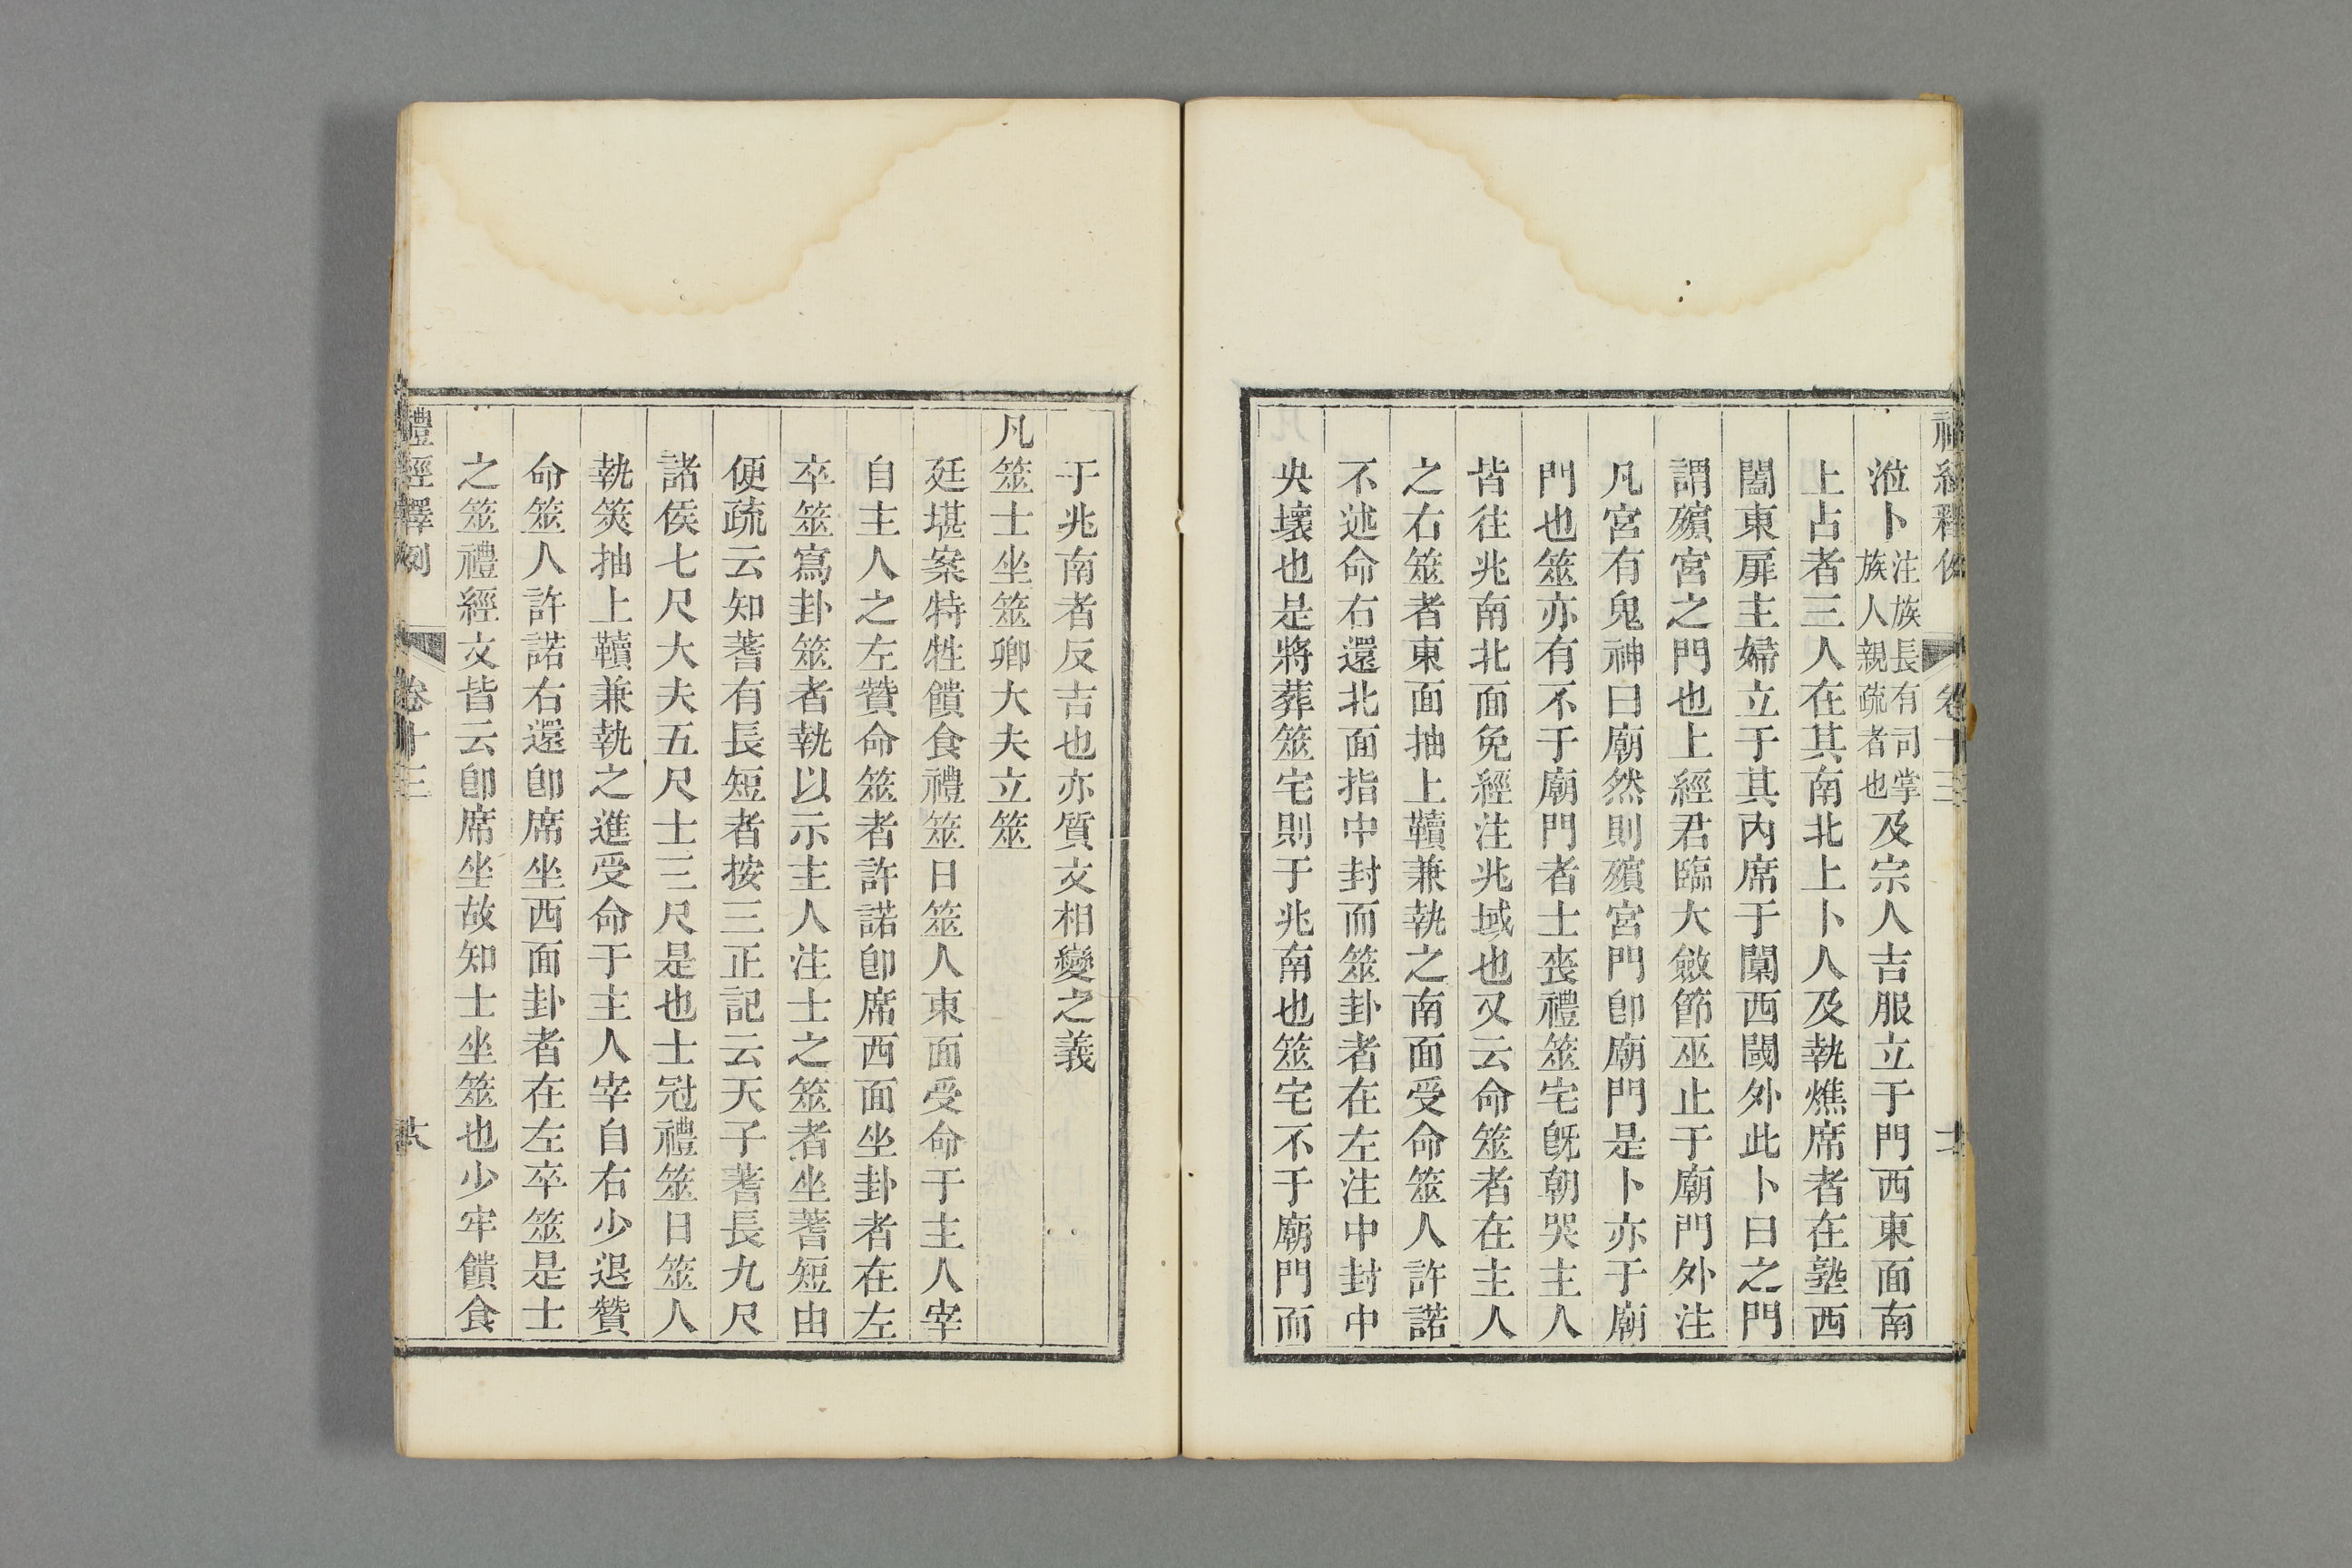 禮經釋例 卷十三
涖卜注族長有司掌族人親疏者也及宗人吉服立于門西東面南
上占者三人在其南北上卜人及執燋席者在塾西
闔東扉主婦立于其內席于闑西閾外此卜日之門
謂殯宮之門也上經君臨大斂節巫止于廟門外注
凡宮有鬼神曰廟然則殯宮門卽廟門是卜亦于廟
門也筮亦有不于廟門者士喪禮筮宅旣朝哭主人
皆往兆南北面免絰注兆域也又云命筮者在主人
之右筮者東面抽上韇兼執之南面受命筮人許諾
不述命右還北面指中封而筮卦者在左注中封中
央壞也是將葬筮宅則于兆南也筮宅不于廟門而
于兆南者反吉也亦質文相變之義
凡筮士坐筮卿大夫立筮
廷堪案特牲饋食禮筮日筮人東面受命于主人宰
自主人之左贊命筮者許諾卽席西面坐卦者在左
卒筮寫卦筮者執以示主人注士之筮者坐蓍短由
便疏云知蓍有長短者按三正記云天子蓍長九尺
諸侯七尺大夫五尺士三尺是也士冠禮筮日筮人
執筴抽上韇兼執之進受命于主人宰自右少退贊
命筮人許諾右還卽席坐西面卦者在左卒筮是士
之筮禮經文皆云卽席坐故知士坐筮也少牢饋食
禮經釋例 卷十三